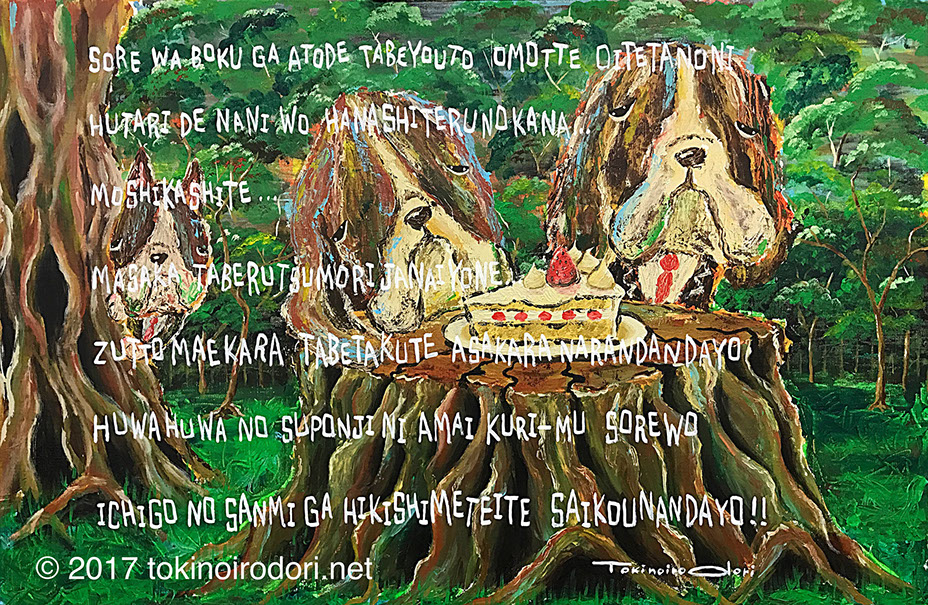 SORE WA BOKU GA ATODE TABEYOUTO OMOTTE OITETANONI
HUTARI DE NANI WO HANASHITERUNOKANA...
MOSHIKASHITE...
MASAKA TABERUTSUMORIJANAIYONE...
ZUTTO MAEKARA TABETAKUTE ASAKARA NARANDANDAYO
HUWAHUWA NO SUPONJI NI AMAI KURI-MU SOREWO
ICHIGO NO SANMI GA HIKISHIMETEITE SAIKOUNANDAYO!!
© 2017 tokinoirodori.net
Tokinoiro Odori